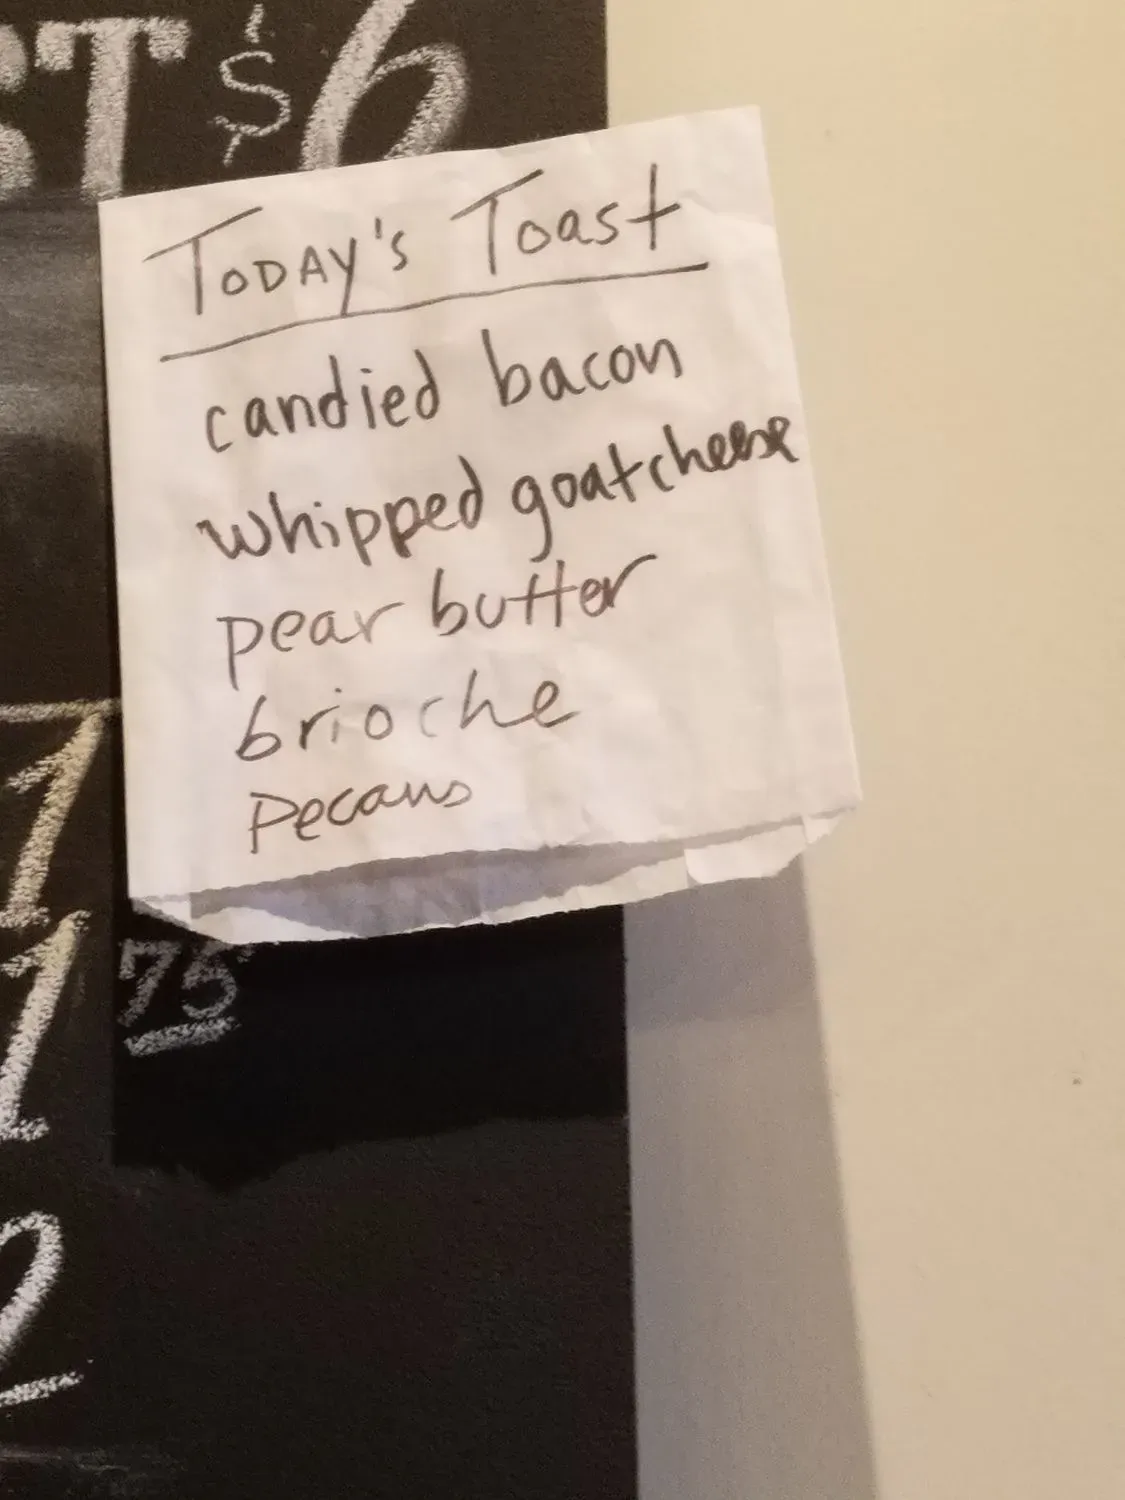 ST $6
TODAY's Toast
candied bacon
whipped goat cheese
pear butter
brioche
pecans
1
1 75
2